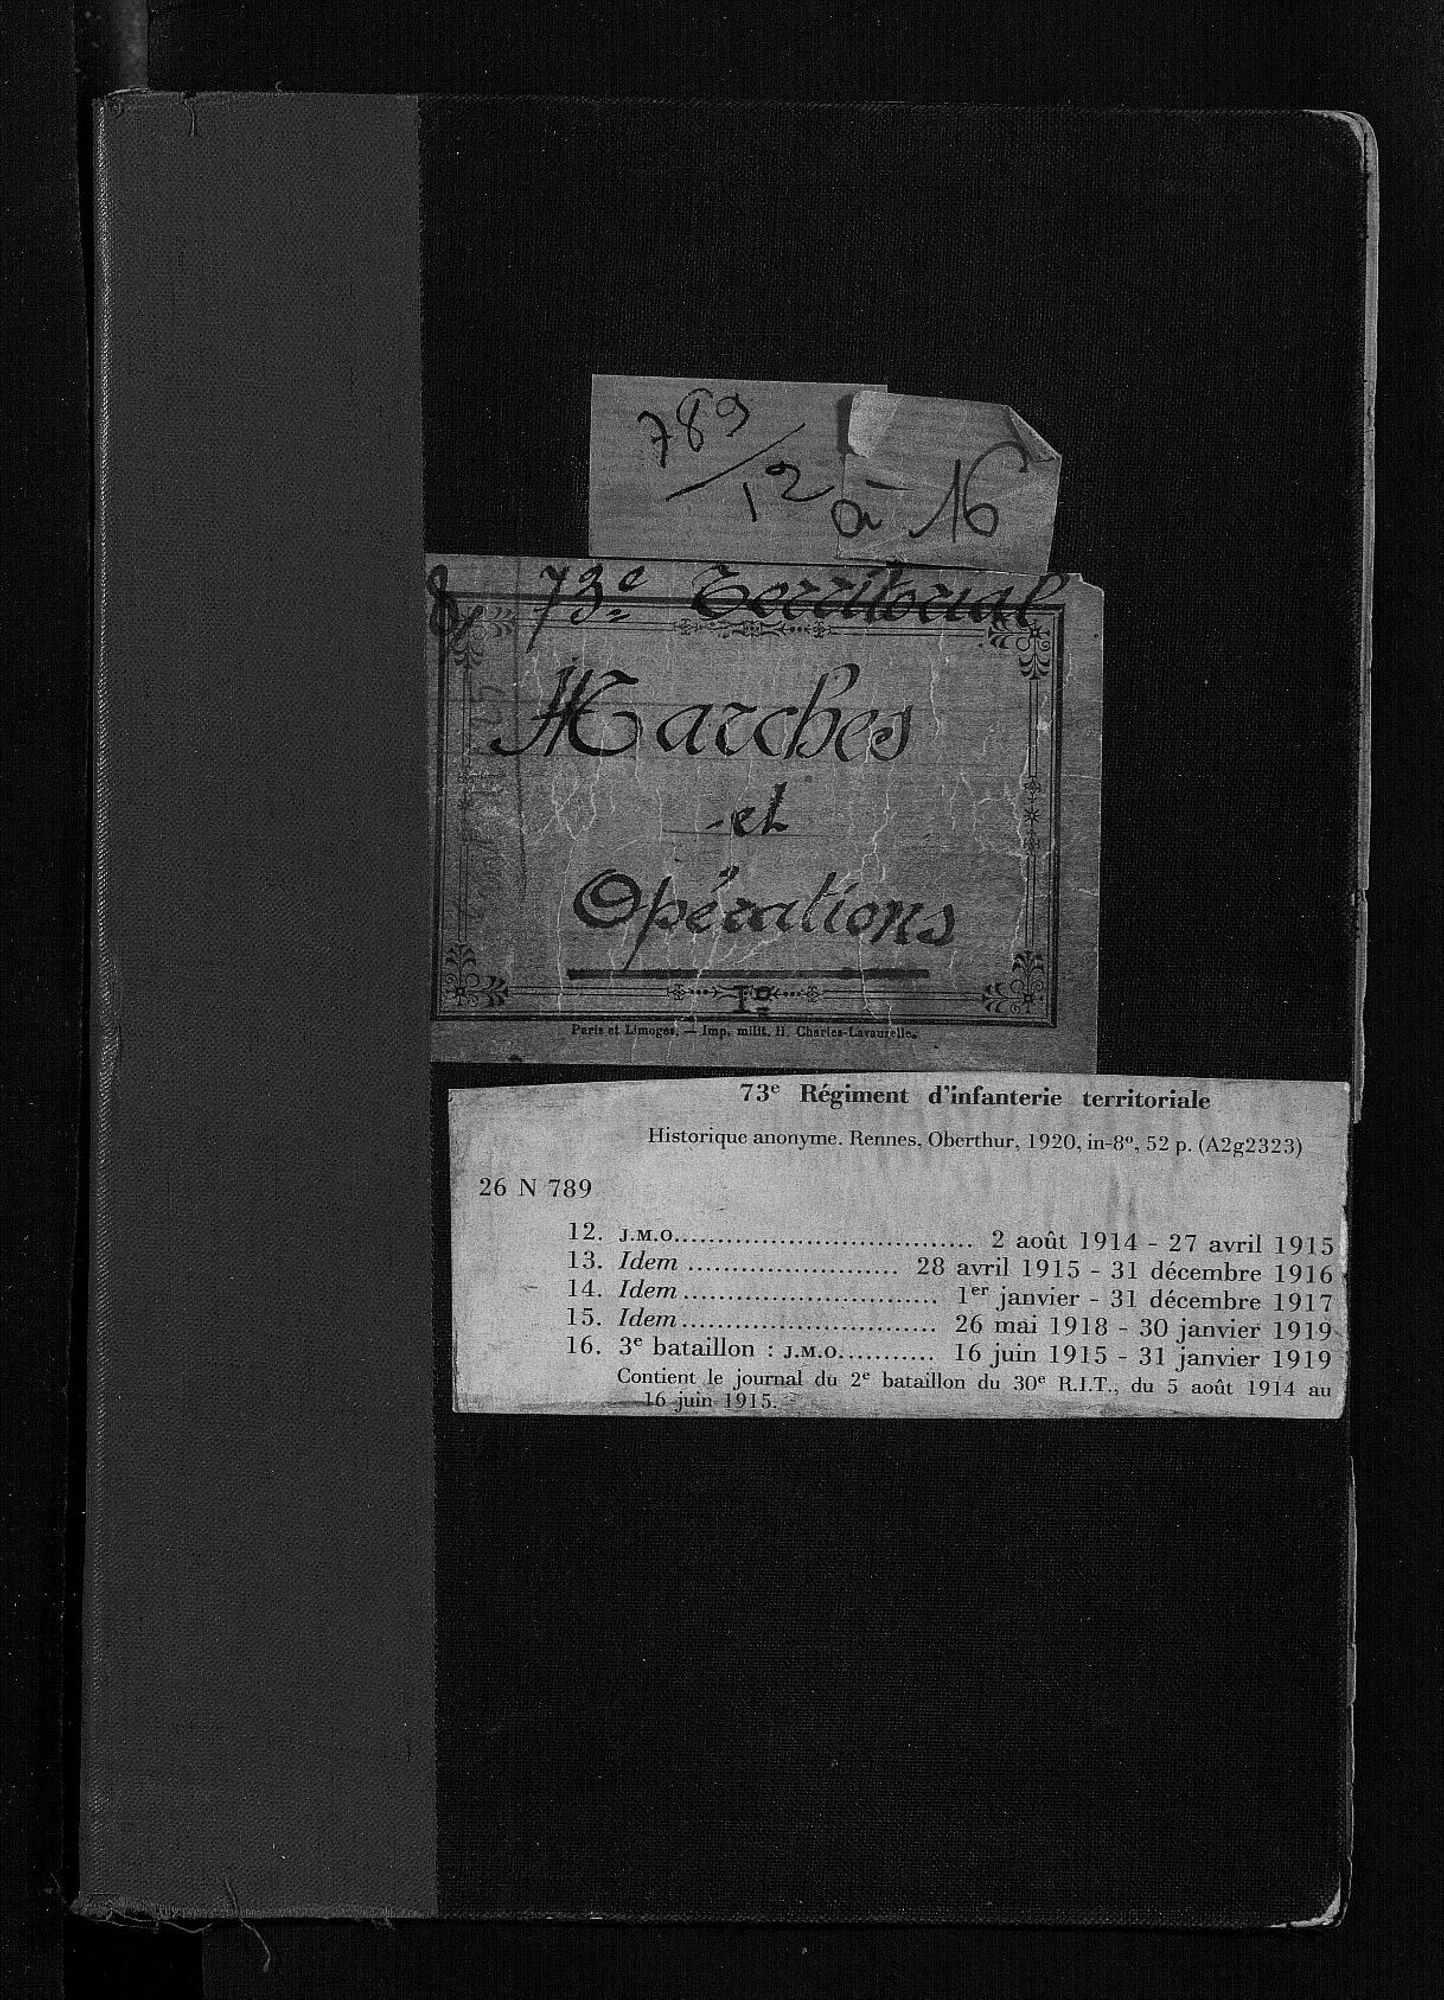 789
/12 à 16
73e Territorial
Marches
et
Opérations
1o
Paris et Limoges. — Imp. milit. H. Charles-Lavauzelle.
73e Régiment d'infanterie territoriale
Historique anonyme. Rennes, Oberthur, 1920, in-8o, 52 p. (A2g2323)
26 N 789
12. J.M.O.................................. 2 août 1914 - 27 avril 1915
13. Idem ........................ 28 avril 1915 - 31 décembre 1916
14. Idem ............................. 1er janvier - 31 décembre 1917
15. Idem ............................. 26 mai 1918 - 30 janvier 1919
16. 3e bataillon : J.M.O........... 16 juin 1915 - 31 janvier 1919
Contient le journal du 2e bataillon du 30e R.I.T., du 5 août 1914 au
16 juin 1915.